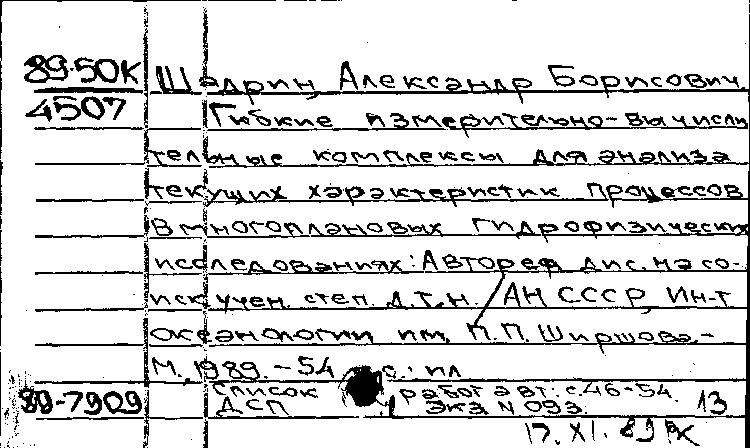 89-50К Шадрин, Александр Борисович.
4507 Гибкие измерительно-вычисли
тельные комплексы для анализа
текущих характеристик процессов
в многоплановых гидрофизических
исследованиях: Автореф. дис. на со-
иск. учен. степ. д.т.н. / АН СССР, Ин-т
океанологии им. П.П. Ширшова.-
М., 1989. - 54 с.: ил
89-7909 Список работ авт. с. 46-54.
ДСП Экз N 093. 13
17. XI. 89